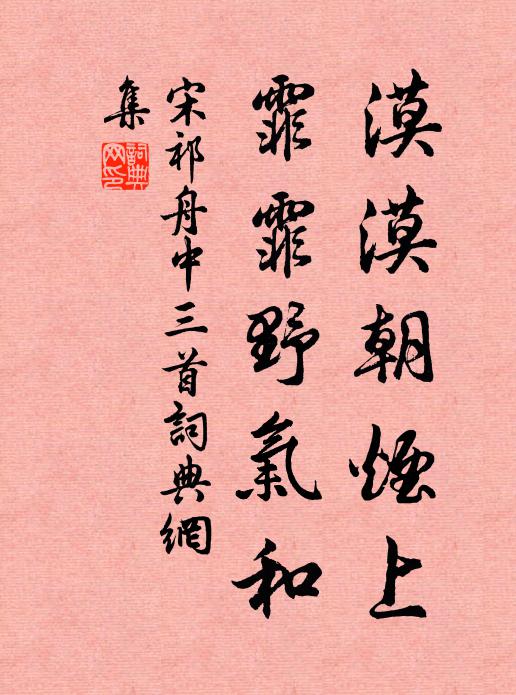 漠漠朝煙上
霏霏野氣和
宋祁舟中三首詞典網
集
詞典
網印